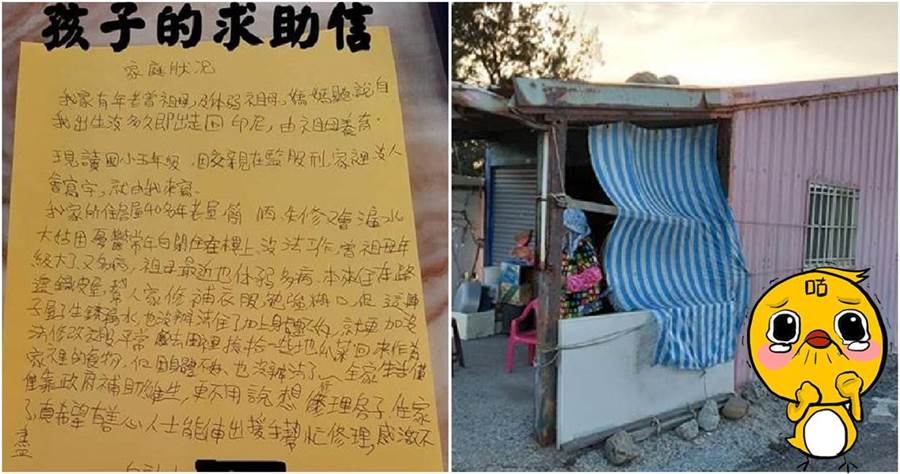 孩子的求助信
家庭狀況
我家有年老曾祖母,及体弱祖母,媽媽聽說自
我出生沒多久即出走回印尼,由祖母養育.
現讀國小五年級.因父親在監服刑,家裡沒人
會寫字,就由我來寫.
我家所住房屋40多年老屋簡 陋失修又會漏水
大姑因憂鬱常年自閉住在樓上,沒法工作,曾祖母年
紀大了又多病,祖母最近也体弱多病.本來住在路
邊鐵皮屋,幫人家修補衣服勉強糊口,但這
子屋了生鏽漏水,也沒辦法住了加上身體 就更加沒
法修改衣服平常 去田裡撿拾一些地瓜葉回來作為
家裡的食物,但因身體不好,也沒辦法了~全家生活僅
僅靠政府補助維生,更不用說想 修理房子,住家
了,真希望有善心人士能伸出援手幫忙修理,感激不
盡
咕